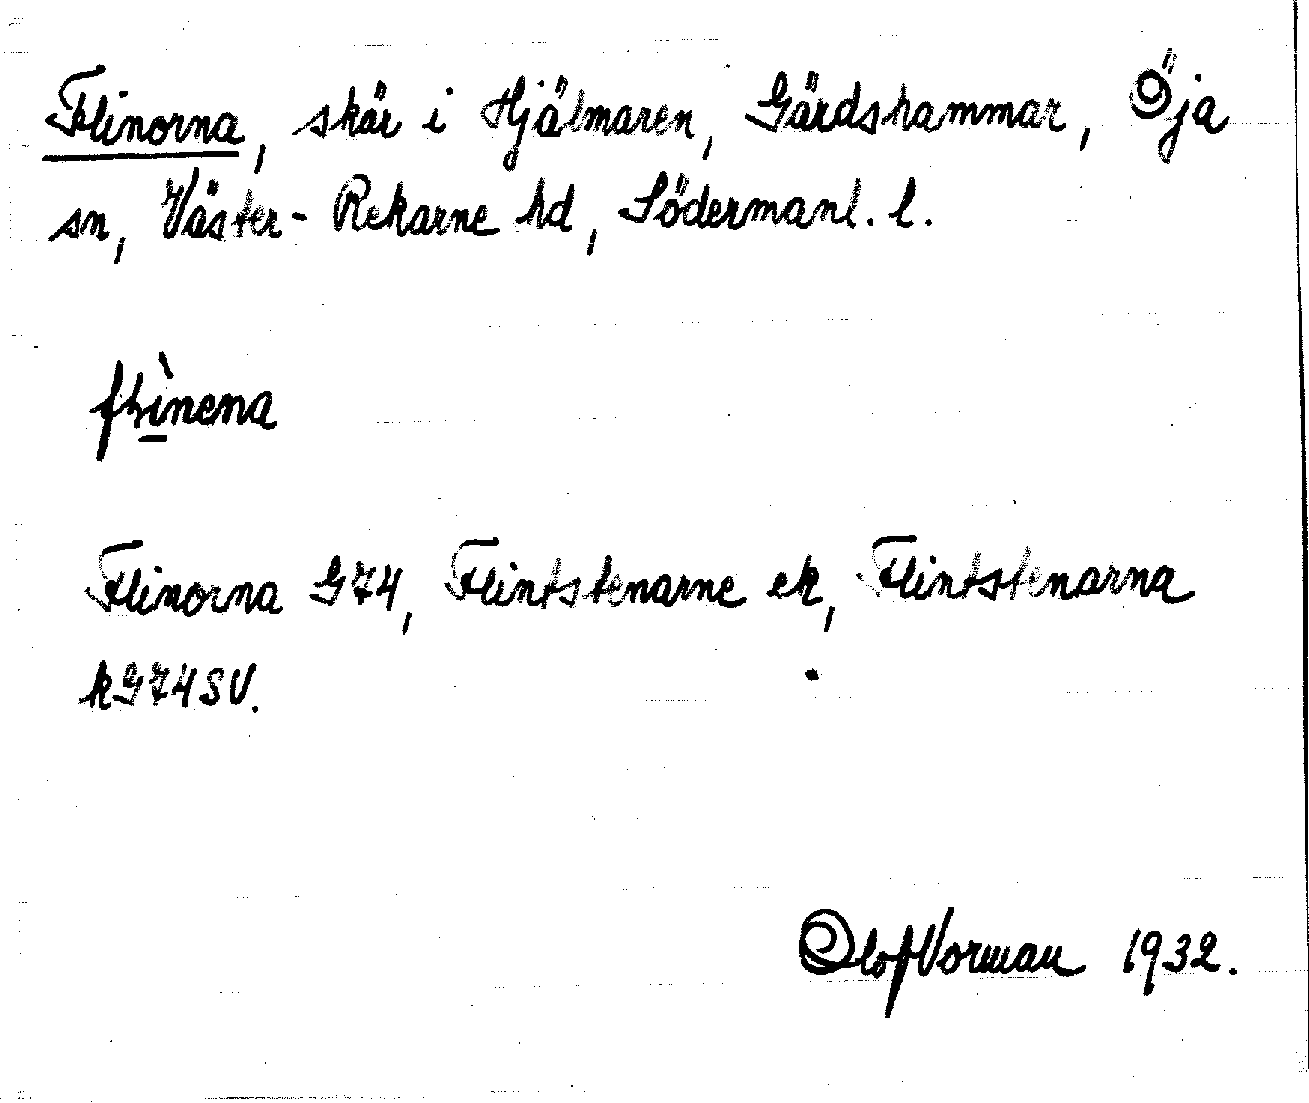 Flinorna, skär i Hjälmaren, Gärdshammar, Öja
sn, Väster-Rekarne hd, Södermanl. l.
flìnena
Flinorna G74, Flintstenarne ek, Flintstenarna
kG74SV.
Olof Vorman 1932.